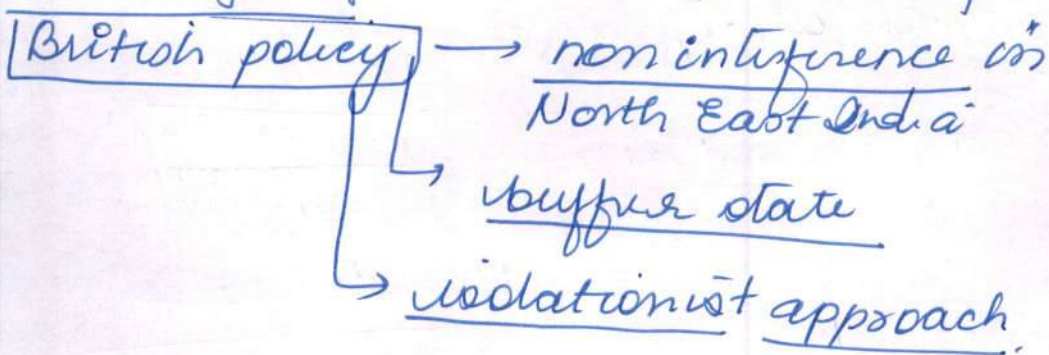 British policy → non interference in
North East India
→ buffer state
→ isolationist approach.